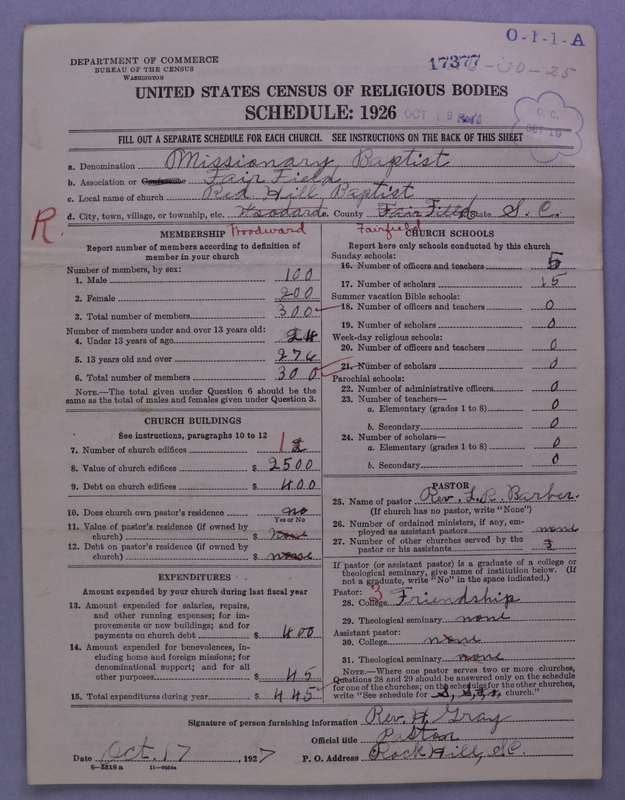 O-1-1-A
DEPARTMENT OF COMMERCE
BUREAU OF THE CENSUS
WASHINGTON
17377
-30-25
UNITED STATES CENSUS OF RELIGIOUS BODIES
SCHEDULE: 1926
OCT 19 Rec'd
C. C.
OCT 19
FILL OUT A SEPARATE SCHEDULE FOR EACH CHURCH. SEE INSTRUCTIONS ON THE BACK OF THIS SHEET
a. Denomination Missionary Baptist
b. Association or Conference Fair Field
c. Local name of church Red Hill Baptist
d. City, town, village, or township, etc. Woodard. County Fair Field State S. C.
R.
Woodward Fairfield
MEMBERSHIP
Report number of members according to definition of member in your church
Number of members, by sex:
1. Male 100
2. Female 200
3. Total number of members 300
Number of members under and over 13 years old:
4. Under 13 years of age 24
5. 13 years old and over 276
6. Total number of members 300
NOTE.—The total given under Question 6 should be the same as the total of males and females given under Question 3.
CHURCH BUILDINGS
See instructions, paragraphs 10 to 12
7. Number of church edifices 1
8. Value of church edifices $ 2500
9. Debt on church edifices $ 400
10. Does church own pastor's residence? no
Yes or No
11. Value of pastor's residence (if owned by church) $ none
12. Debt on pastor's residence (if owned by church) $ none
EXPENDITURES
Amount expended by your church during last fiscal year
13. Amount expended for salaries, repairs, and other running expenses; for improvements or new buildings; and for payments on church debt $ 400
14. Amount expended for benevolences, including home and foreign missions; for denominational support; and for all other purposes $ 45
15. Total expenditures during year $ 445
CHURCH SCHOOLS
Report here only schools conducted by this church
Sunday schools:
16. Number of officers and teachers 5
17. Number of scholars 15
Summer vacation Bible schools:
18. Number of officers and teachers 0
19. Number of scholars 0
Week-day religious schools:
20. Number of officers and teachers 0
21. Number of scholars 0
Parochial schools:
22. Number of administrative officers 0
23. Number of teachers—
a. Elementary (grades 1 to 8) 0
b. Secondary 0
24. Number of scholars—
a. Elementary (grades 1 to 8) 0
b. Secondary 0
PASTOR
25. Name of pastor Rev. L. R. Barber.
(If church has no pastor, write "None")
26. Number of ordained ministers, if any, employed as assistant pastors none
27. Number of other churches served by the pastor or his assistants 3
If pastor (or assistant pastor) is a graduate of a college or theological seminary, give name of institution below. (If not a graduate, write "No" in the space indicated.)
Pastor: 3
28. College Friendship
29. Theological seminary none
Assistant pastor:
30. College none
31. Theological seminary none
NOTE.—Where one pastor serves two or more churches, Questions 28 and 29 should be answered only on the schedule for one of the churches; on the schedules for the other churches, write "See schedule for church."
Signature of person furnishing information Rev. H. Gray
Official title Pastor
Date Oct. 17, 1927 P. O. Address Rock Hill, S.C.
8-5518 a 11-9264a